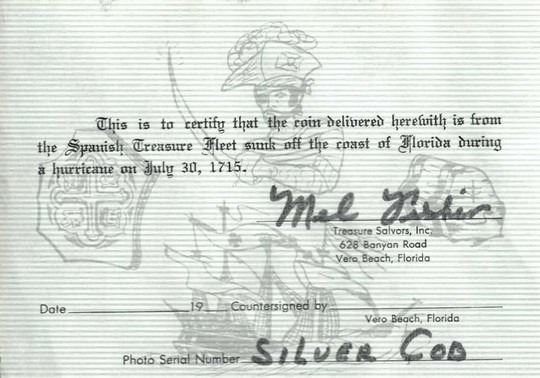 This is to certify that the coin delivered herewith is from
the Spanish Treasure Fleet sunk off the coast of Florida during
a hurricane on July 30, 1715.
Mel Fisher
Treasure Salvors, Inc.
628 Banyan Road
Vero Beach, Florida
Date 19 Countersigned by
Vero Beach, Florida
Photo Serial Number SILVER COB